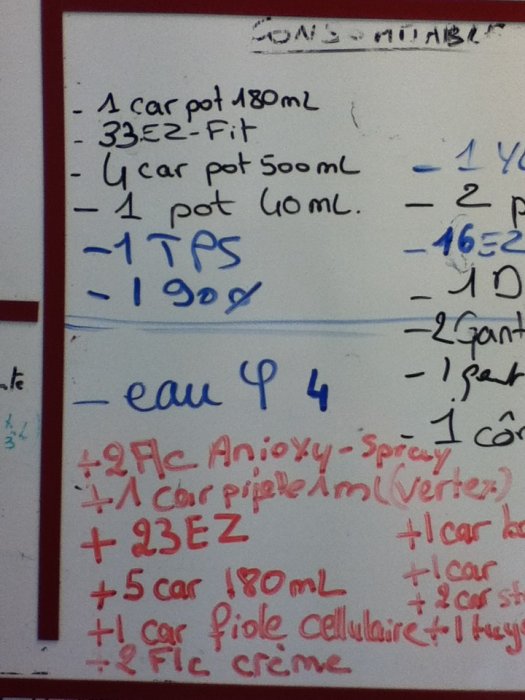 CONSOMMABLE
- 1 car pot 180mL
- 33EZ-Fit
- 4 car pot 500mL
- 1 pot 40mL.
- 1 TPS
- 1 90%
- eau φ 4
+2 Flc Anioxy-Spray
+1 car pipette 1ml (vertex)
+ 23EZ
+5 car 180mL
+1 car fiole cellulaire
+2 Flc crème
- 1
- 2 p
- 16EZ
- 1 D
- 2 Gant
- 1
- 1 côn
+1 car
+1 car
+2 car st
+1 tuy